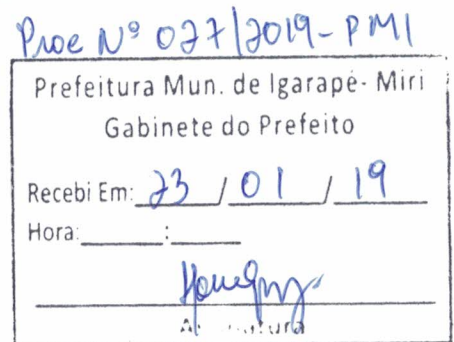 Proc Nº 027/2019-PMI
Prefeitura Mun. de Igarapé- Miri
Gabinete do Prefeito
Recebi Em: 23 / 01 / 19
Hora:______:______